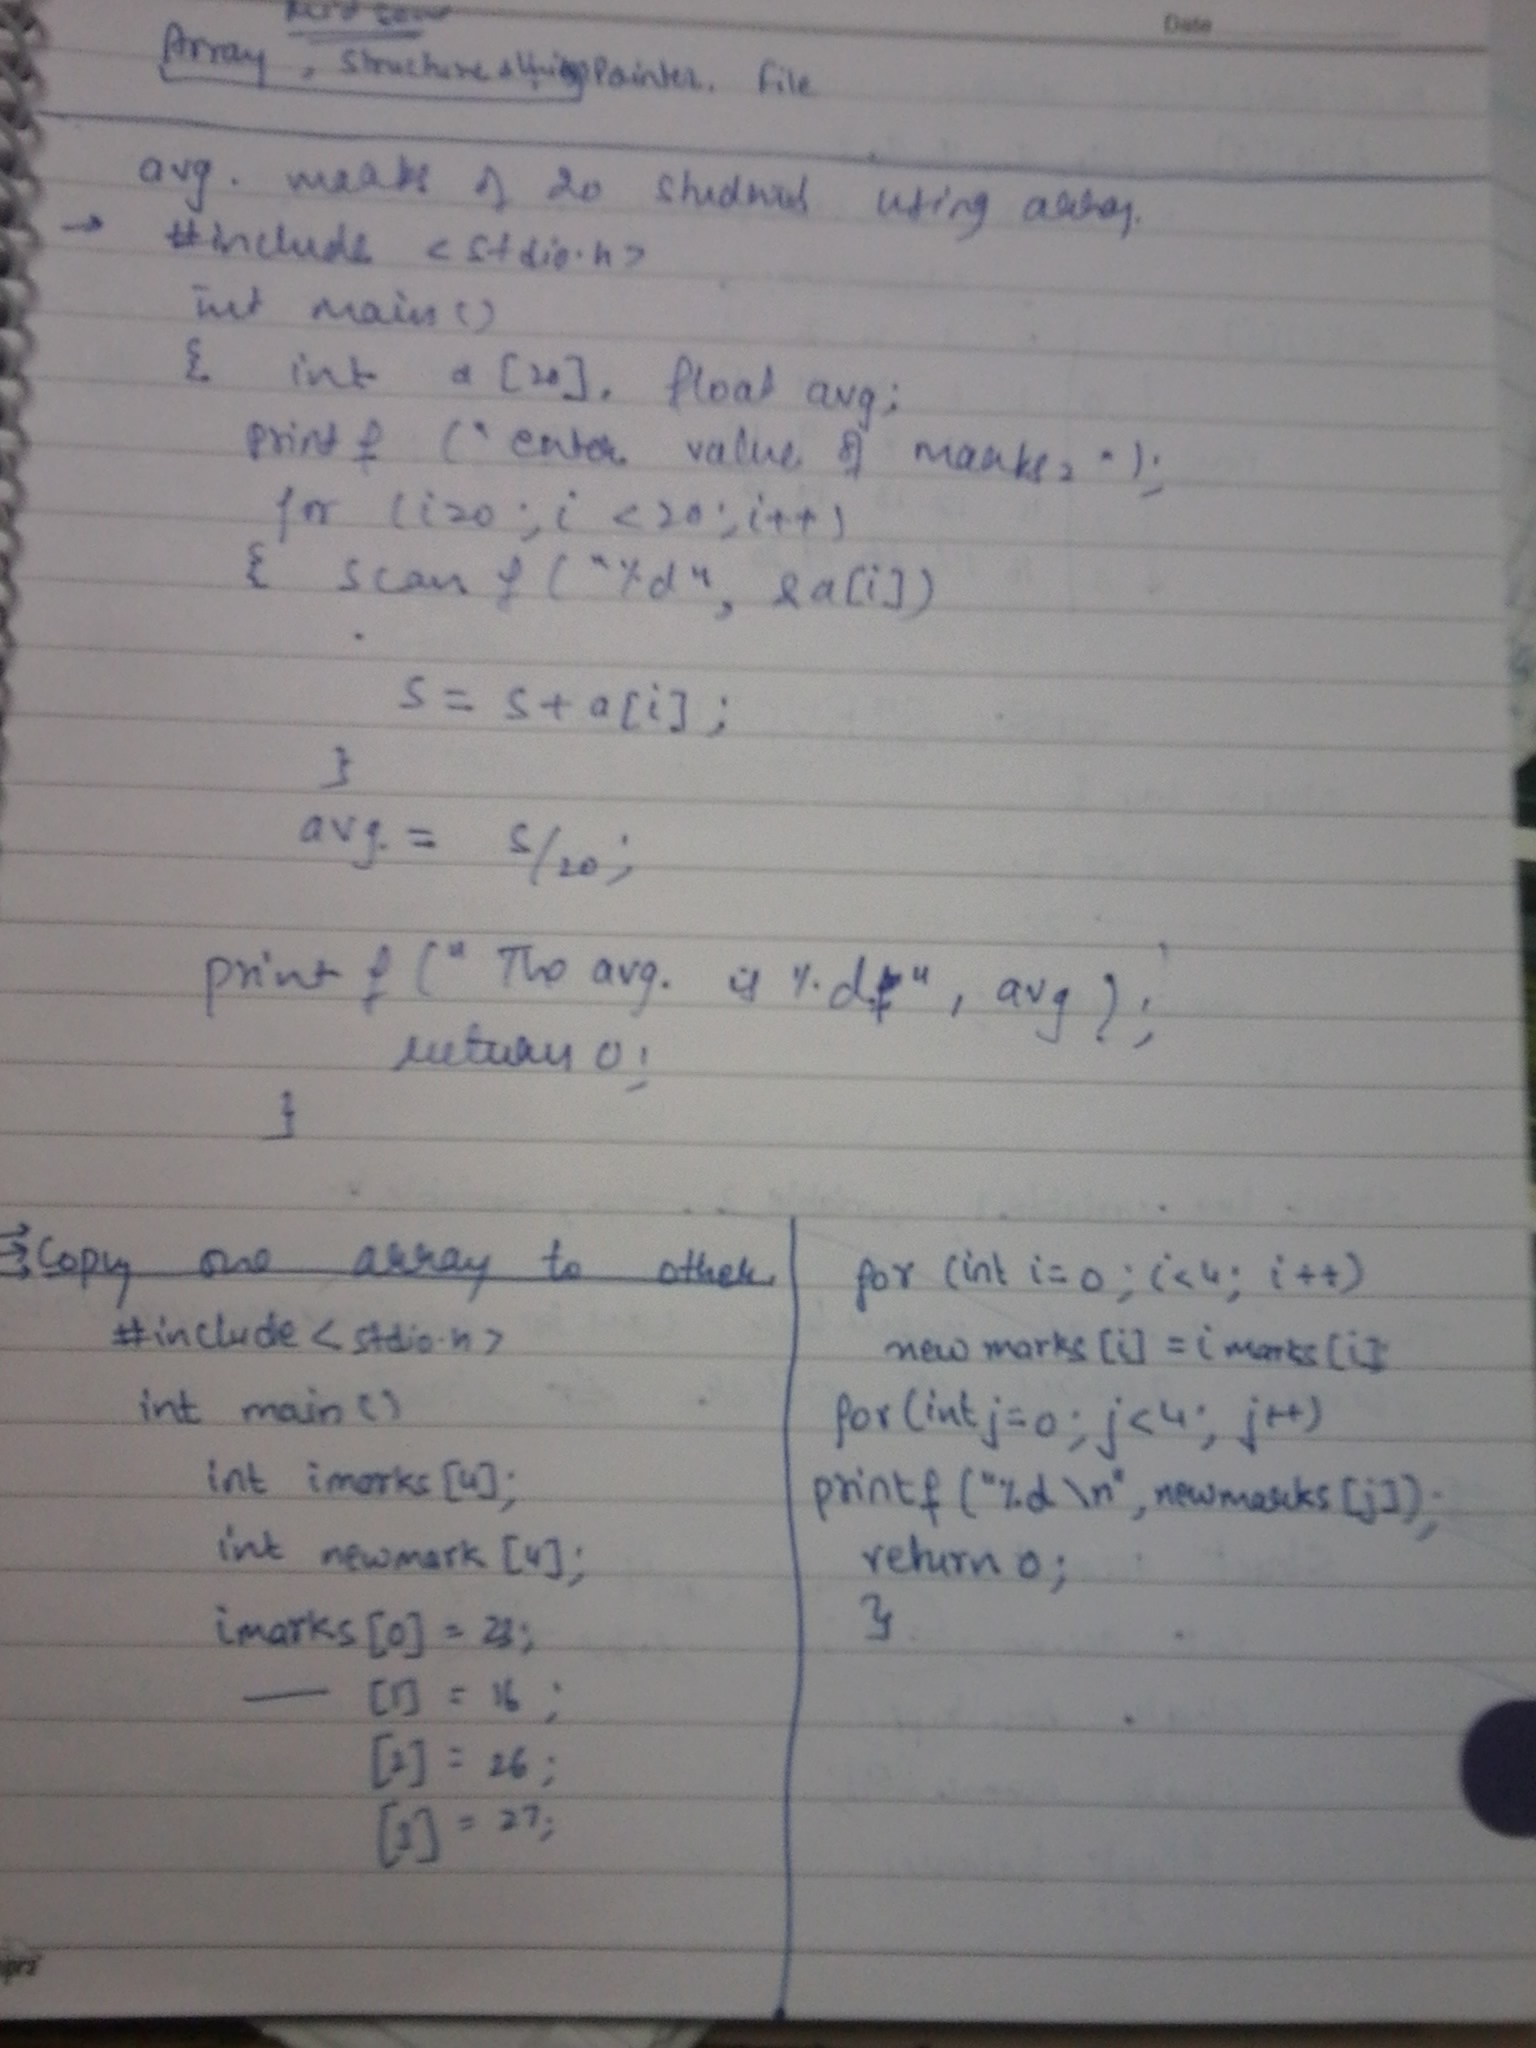 Date
Array, structure, string Pointer. File
avg. marks of 20 students using array.
→ #include <stdio.h>
int main()
{ int a[20], float avg;
printf ("enter value of marks, ");
for (i=0; i<20; i++)
{ scanf ("%d", &a[i])
s = s+a[i];
}
avg. = s/20;
printf (" The avg. is %.df", avg);
return 0;
}
⇒ Copy one array to other
#include <stdio.h>
int main()
int imarks [4];
int newmark [4];
imarks [0] = 23;
— [1] = 16;
[2] = 26;
[3] = 27;
for (int i=0; i<4; i++)
new marks [i] = imarks [i]
for (int j=0; j<4; j++)
printf ("%d \n", newmarks [j]);
return 0;
}